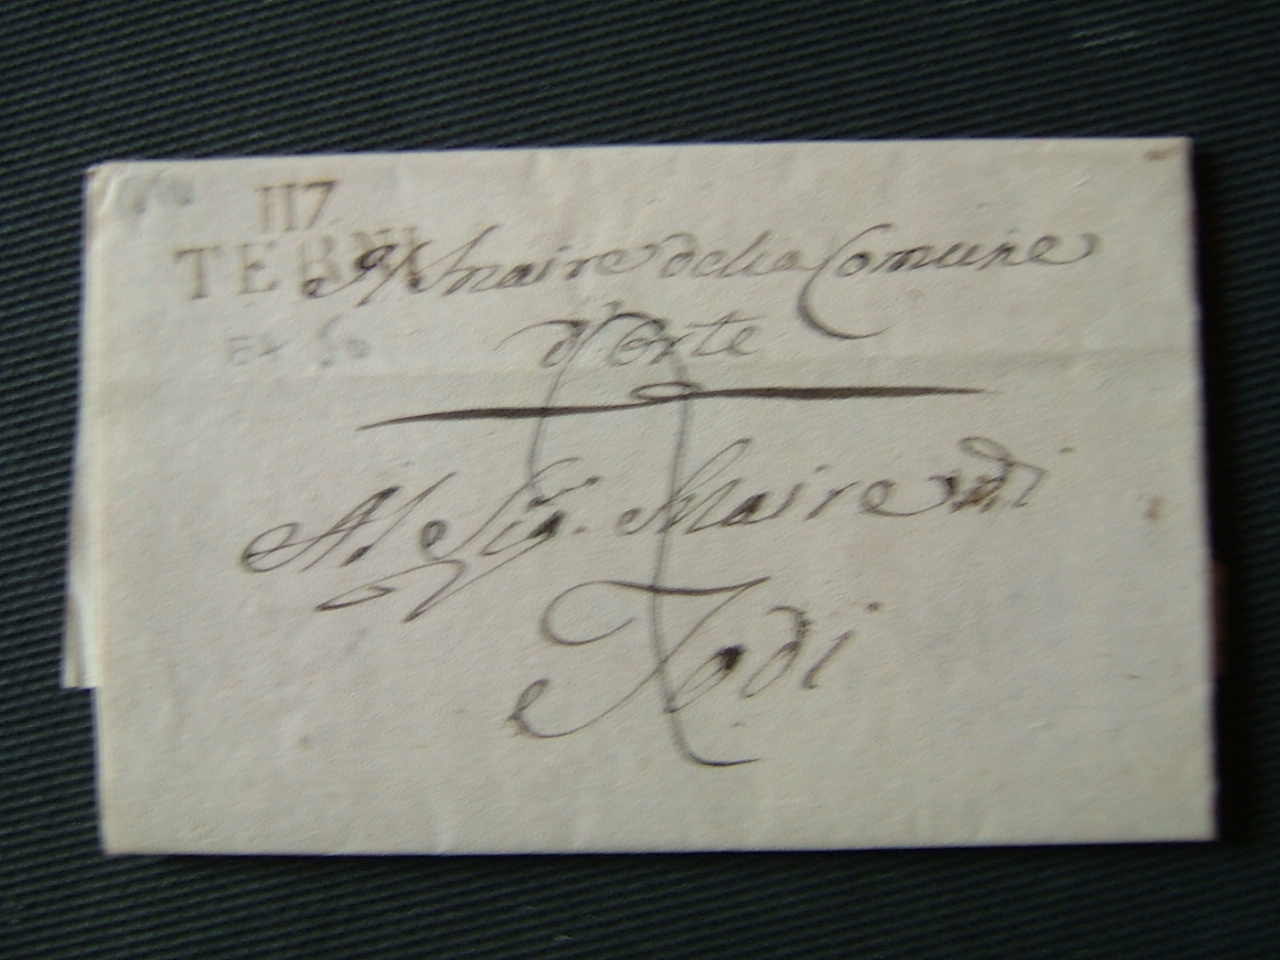 117
TERNI
Il Maire della Comune
d'Orte
Al Sig. Maire di
Todi